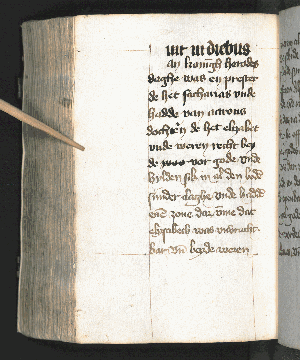 uit in diebus
An konnīgh herodes
daghe was en prester
de het sacharias vnde
hadde van aarons
dochterē de het elyzabet
vnde weren recht bey
de vor gode vnde
hylden sik in al den bode
sunder claghe vnde hadde
enē zone dar vme dat
elyzabeth was vnvrucht
bar vn̄ beyde weren